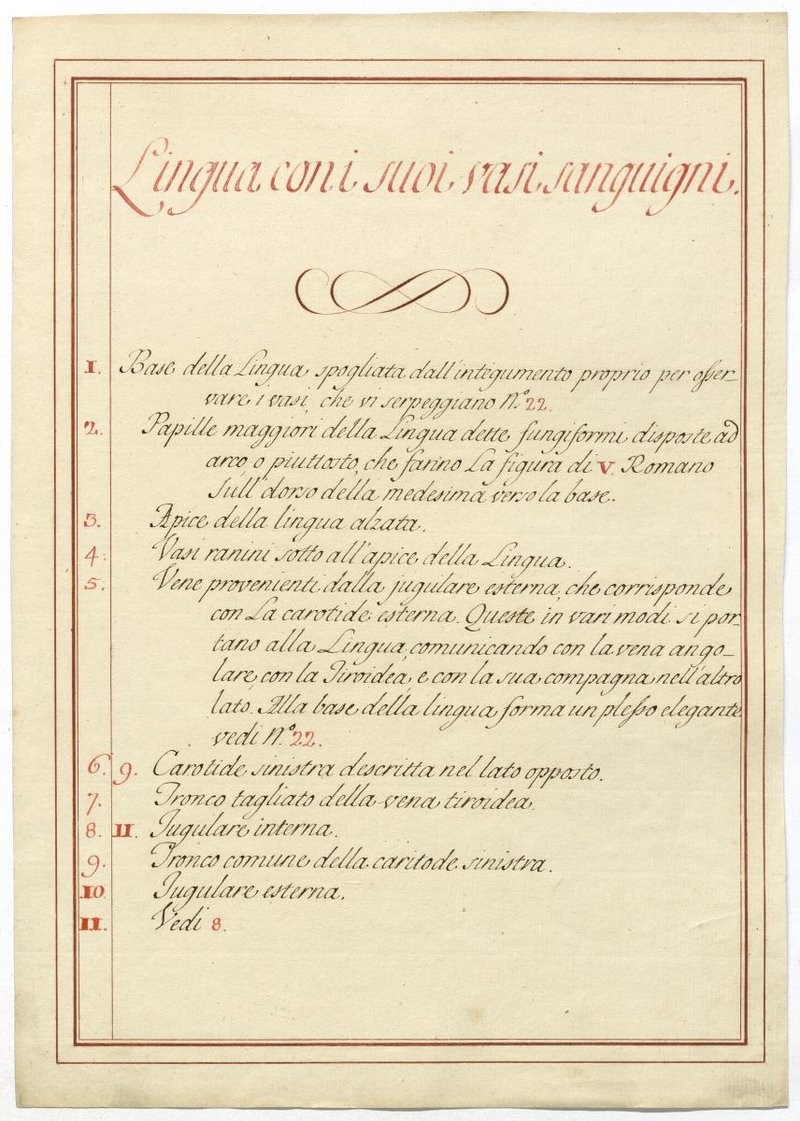 Lingua con i suoi vasi sanguigni.
1. Base della Lingua spogliata dall'integumento proprio per osser-
vare i vasi, che vi serpeggiano N.º 22.
2. Papille maggiori della Lingua dette fungiformi disposte ad
arco, o piuttosto, che fanno La figura di V. Romano
sull' dorso della medesima verso la base.
3. Apice della lingua alzata.
4. Vasi ranini sotto all'apice della Lingua.
5. Vene provenienti dalla jugulare esterna, che corrisponde
con La carotide esterna. Queste in vari modi si por-
tano alla Lingua, comunicando con la vena ango-
lare, con la Tiroidea, e con la sua compagna nell'altro
lato. Alla base della lingua forma un plesso elegante
vedi N.º 22.
6. 9. Carotide sinistra descritta nel lato opposto.
7. Tronco tagliato della vena tiroidea.
8. 11. Jugulare interna.
9. Tronco comune della caritode sinistra.
10. Jugulare esterna.
11. Vedi 8.